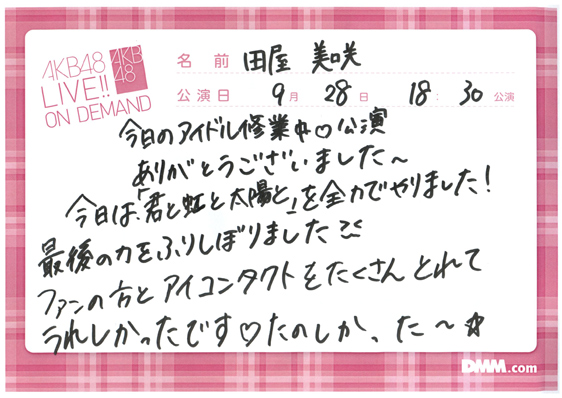 AKB48
LIVE!!
ON DEMAND
AKB
48
名前 田屋 美咲
公演日 9月 28日 18:30公演
今日のアイドル修業中♡公演
ありがとうございました～
今日は「君と虹と太陽と」を全力でやりました!
最後の力をふりしぼりました
ファンの方とアイコンタクトをたくさんとれて
うれしかったです♡たのしかった～☆
DMM.com